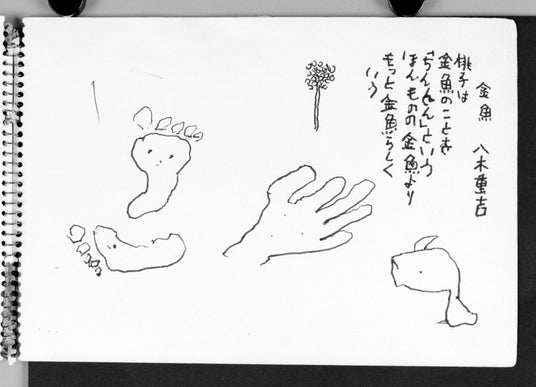 金魚　八木重吉
桃子は
金魚のことを
という
ほんものの金魚より
もっと金魚らしく
いう